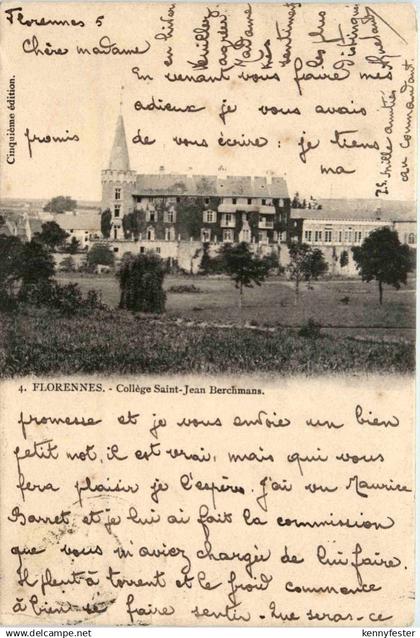 Florennes 5
Chère madame
En venant vous faire mes
adieux je vous avais
promis de vous écrire: je tiens
ma
Cinquième édition.
4. FLORENNES. - Collège Saint-Jean Berchmans.
promesse et je vous envoie un bien
petit mot, il est vrai, mais qui vous
fera plaisir je l'espère. J'ai vu Maurice
Barret et je lui ai fait la commission
que vous m'aviez chargée de lui faire.
Il pleut à torrent et le froid commence
à bien se faire sentir. Que sera-ce
en hiver
Veuillez
agréer
Madame
mes
sentiments
les plus
distingués
mille amitiés
au Commandant.
kennyfester